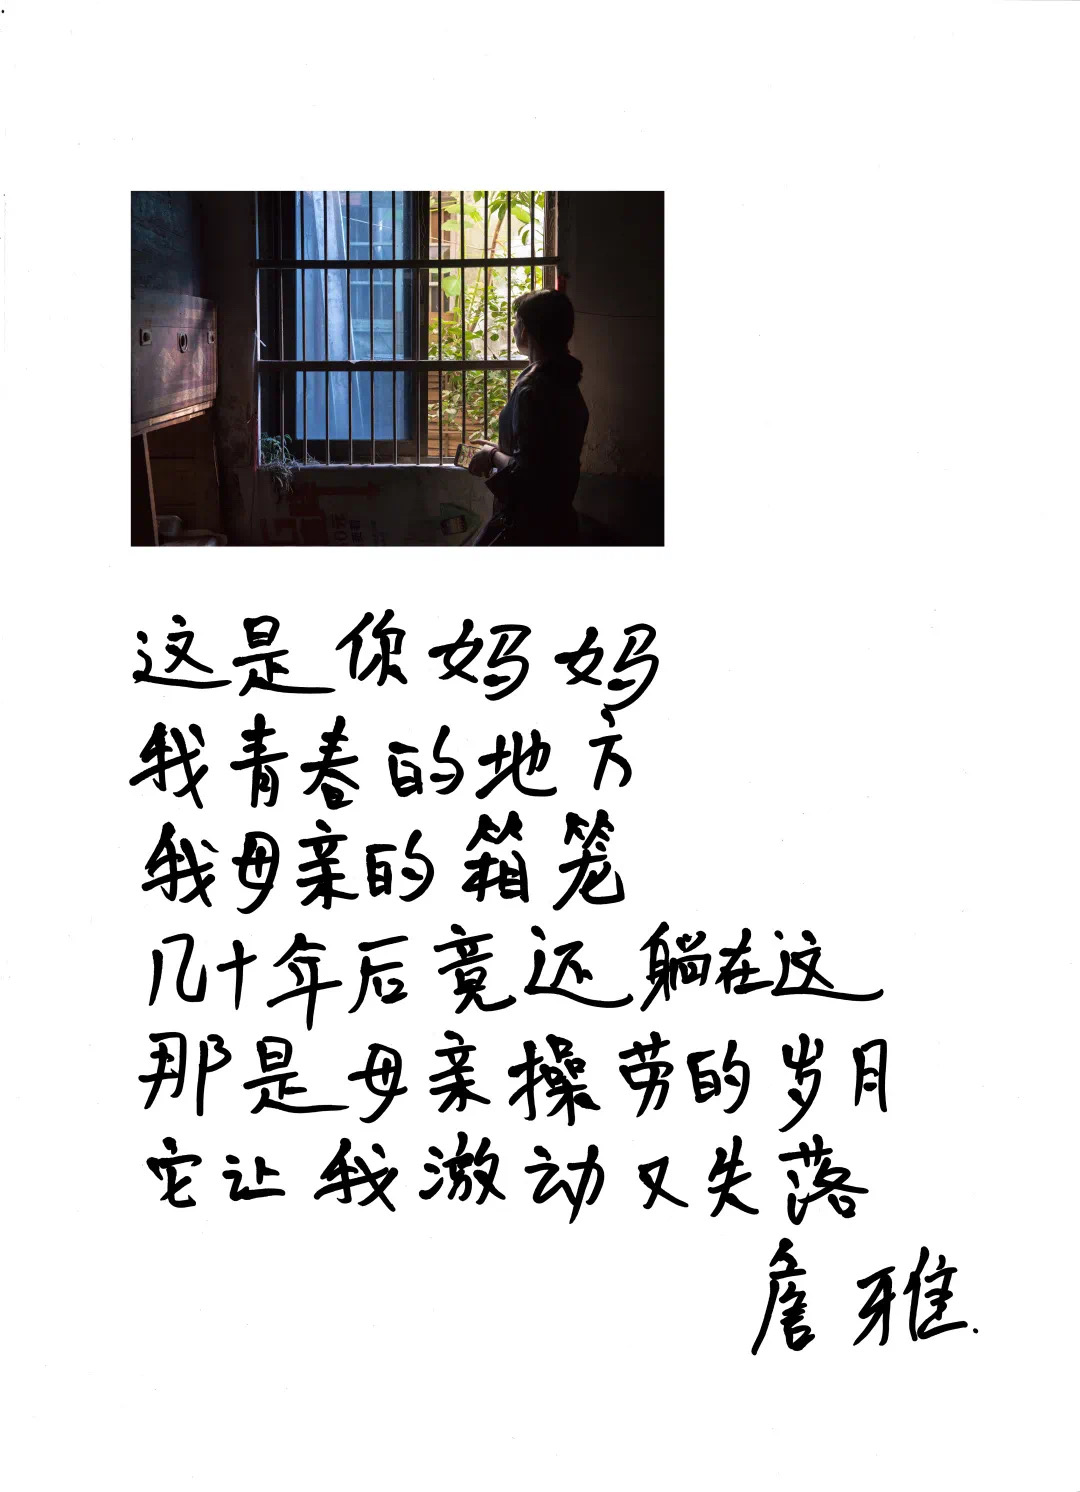 这是你妈妈
我青春的地方
我母亲的箱笼
几十年后竟还躺在这
那是母亲操劳的岁月
它让我激动又失落
詹雅.